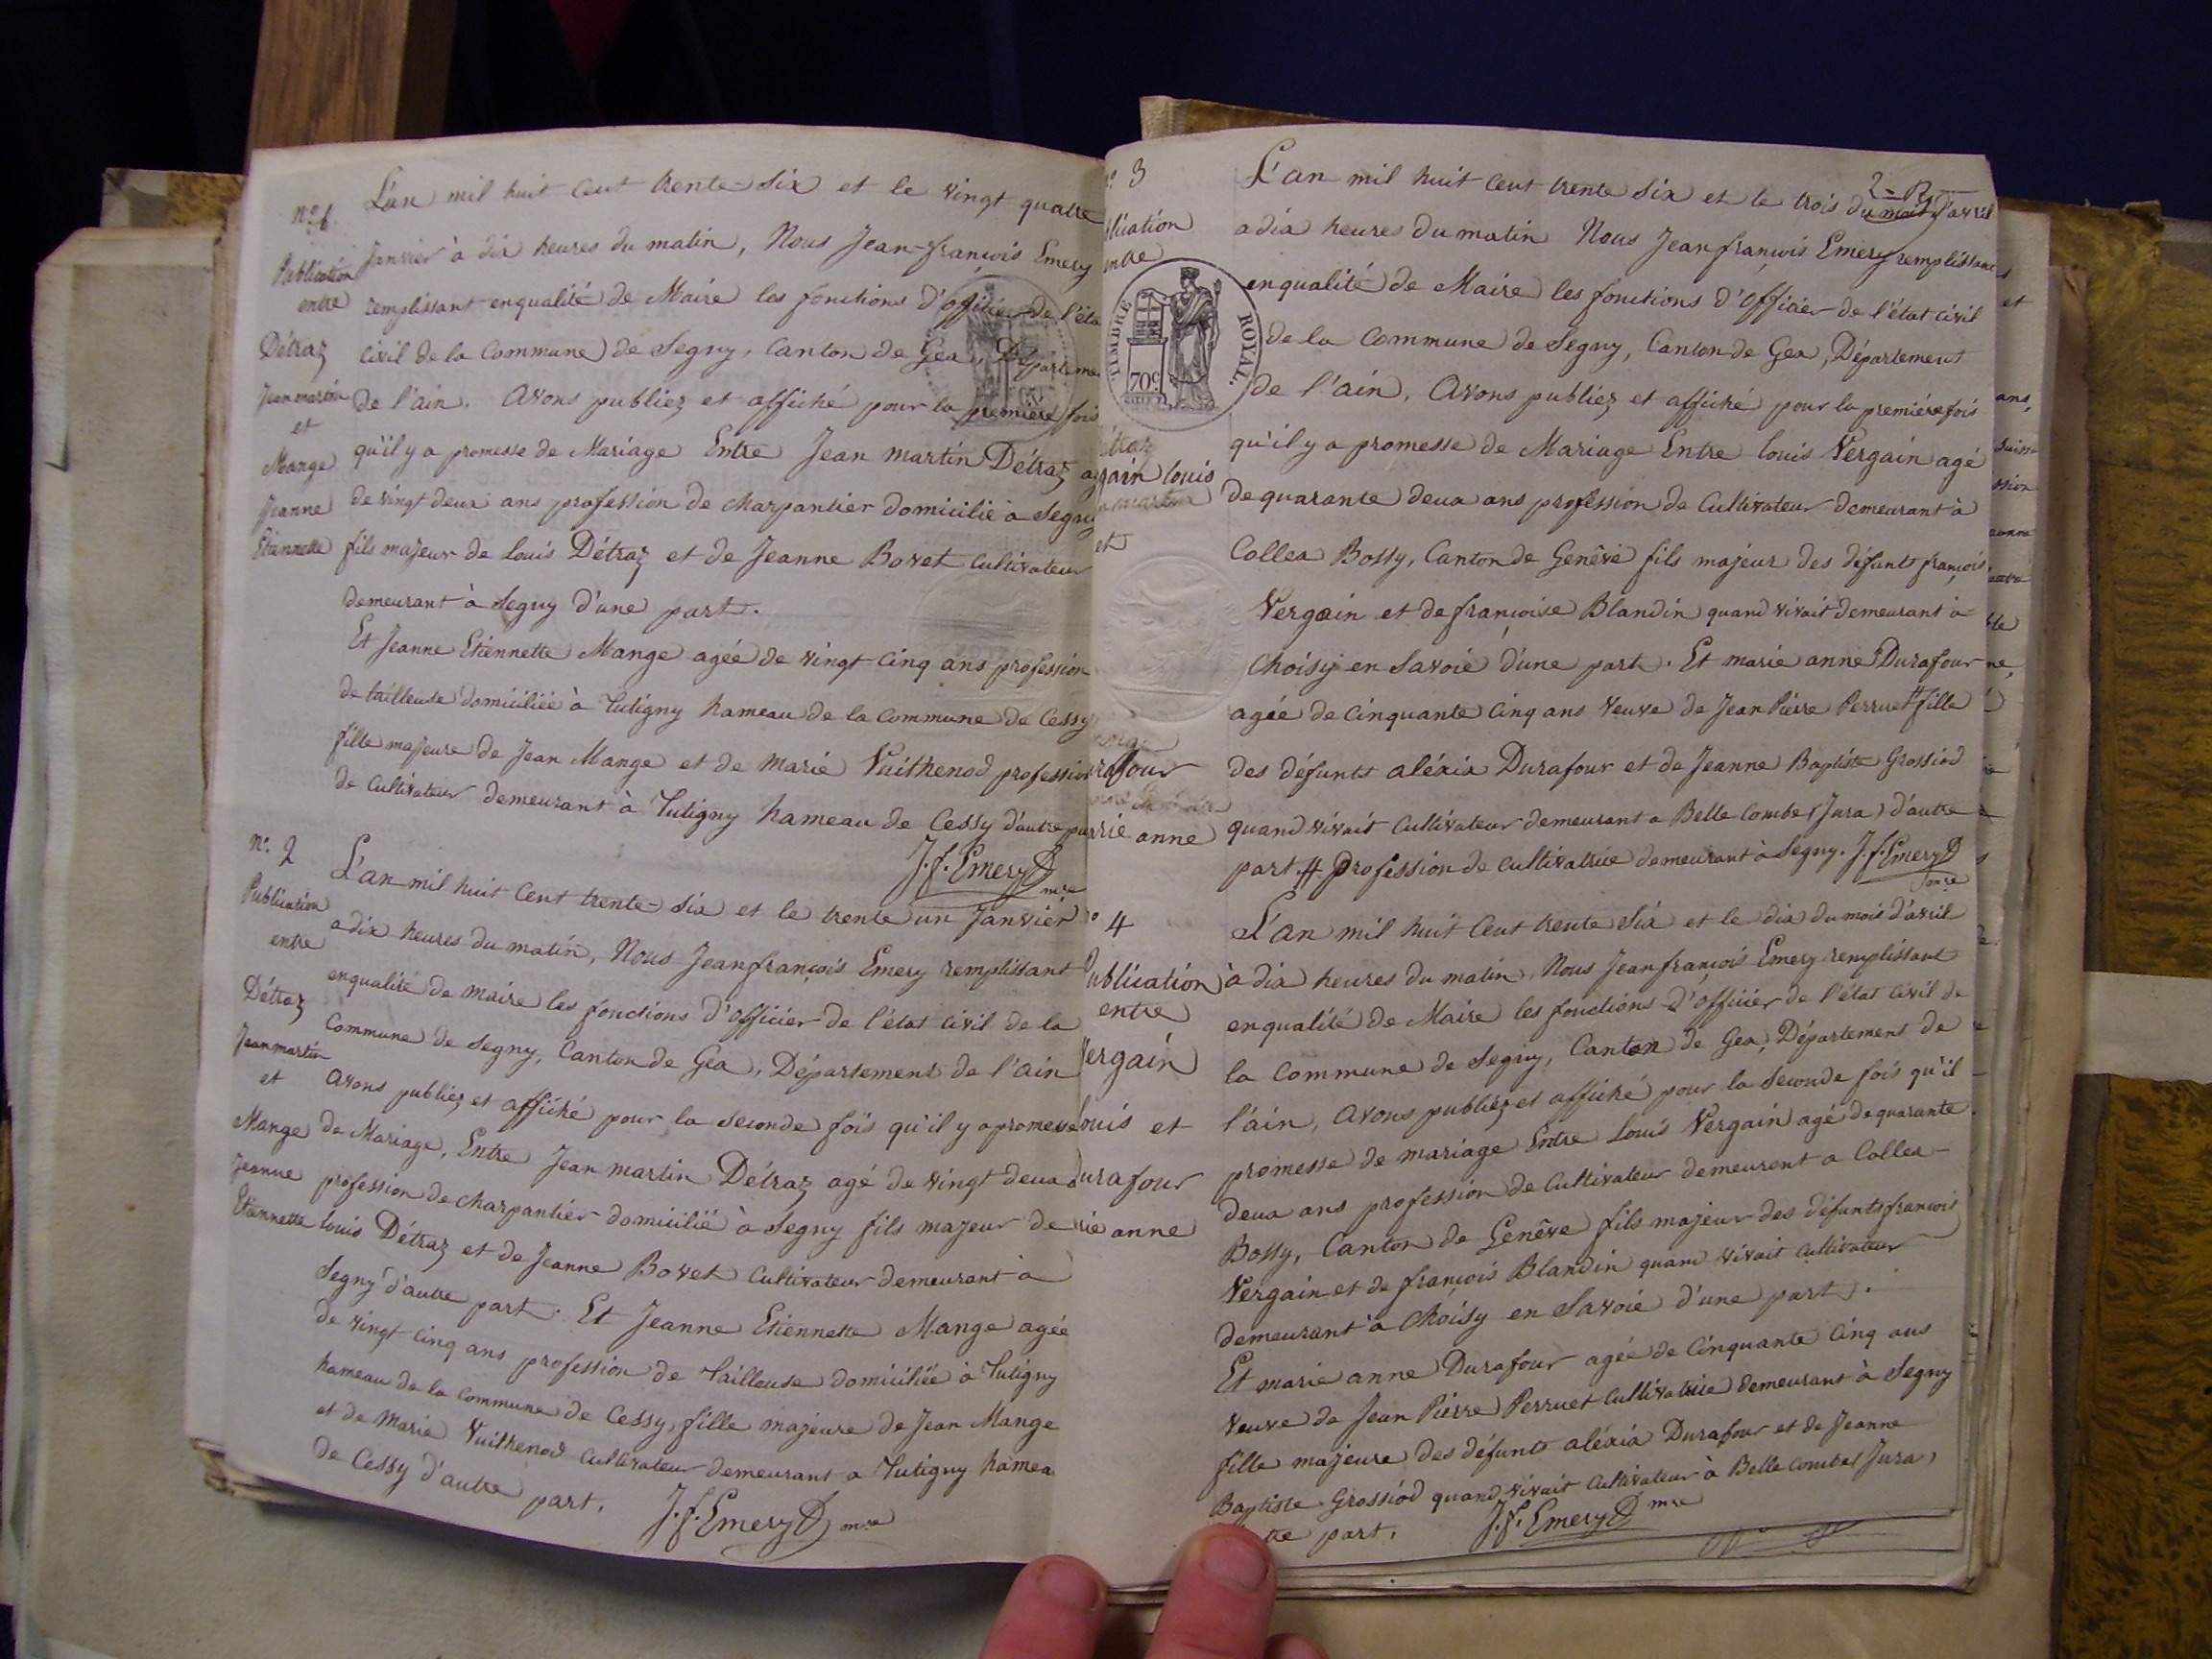 nº 1
Publication
entre
Détraz
Jean martin
et
Mange
Jeanne
Etiennette
L'an mil huit Cent trente-Six et le vingt quatre
Janvier à dix heures du matin, Nous Jean-françois Emery
remplissant enqualité de Maire les fonctions d'officier de l'éta
Civil de la Commune de Segny, Canton de Gex, Départeme
de l'ain. Avons publiez et affiché pour la première fois
qu'il y a promesse de Mariage Entre Jean martin Détraz ag
de vingt deux ans profession de charpantier domicilié a Segny
fils majeur de Louis Détraz et de Jeanne Bovet Cultivateur
demeurant à Segny d'une part.
Et Jeanne Etiennette Mange agée de vingt Cinq ans profession
de tailleuse domiciliée à Tutigny hameau de la Commune de Cessy
fille majeure de Jean Mange et de Marie Vuithenod profession
de Cultivateur demeurant à Tutigny hameau de Cessy d'autre par
J.f. Emery mre
nº 2
Publication
entre
Détraz
Jean martin
et
Mange
Jeanne
Etiennette
L'an mil huit Cent trente-Six et le trente un Janvier
a dix heures du matin, Nous Jean françois Emery remplissant
enqualité de maire les fonctions d'officier de l'état Civil de la
Commune de Segny, Canton de Gex, Département de l'ain
avons publiez et affiché pour la Seconde fois qu'il y a promesse
de Mariage, Entre Jean martin Détraz agé de vingt deux
profession de charpantier domicilié à Segny fils majeur de
louis Détraz et de Jeanne Bovet Cultivateur demeurant a
Segny d'autre part. Et Jeanne Etiennette Mange agée
de vingt Cinq ans profession de Tailleuse domiciliée à Tutigny
hameau de la Commune de Cessy, fille majeure de Jean Mange
et de Marie Vuithenod Cultivateur demeurant a Tutigny hamea
de Cessy d'autre part.
J.f. Emery mre
3
blication
entre
TIMBRE ROYAL.
70c
rgain louis
et
rafour
rie anne
L'an mil huit Cent trente Six et le trois du mois d'avril
a dix heures du matin Nous Jean françois Emery remplissant
enqualité de Maire les fonctions d'officier de l'état Civil
de la Commune de Segny, Canton de Gex, Département
de l'ain, Avons publiez et affiché pour la première fois
qu'il y a promesse de Mariage Entre louis Vergain agé
de quarante deux ans profession de Cultivateur demeurant à
Collex Bossy, Canton de Genêve fils majeur des défunts françois
Vergain et de françoise Blandin quand vivait demeurant à
Choisy en Savoie d'une part. Et marie anne Durafour
agée de Cinquante Cinq ans Veuve de Jean Pierre Perruet # fille
des défunts aléxix Durafour et de Jeanne Baptiste Grossiod
quand vivait Cultivateur demeurant a Belle Combe (Jura) d'autre
part. # profession de cultivatrice demeurant à Segny. J.f. Emery
mre
4
Publication
entre
Vergain
louis et
Durafour
rie anne
L'an mil huit Cent trente Six et le dix du mois d'avril
à dix heures du matin, Nous Jean françois Emery remplissant
enqualité de Maire les fonctions d'officier de l'état Civil de
la Commune de Segny, Canton de Gex, Département de
l'ain, avons publiez et affiché pour la Seconde fois qu'il
promesse de mariage Entre Louis Vergain agé de quarante
deux ans profession de Cultivateur demeurent a Collex-
Bossy, Canton de Genêve fils majeur des défunts francois
Vergain et de françois Blandin quand vivait Cultivateur
demeurant à Choisy en Savoie d'une part.
Et marie anne Durafour agée de Cinquante Cinq ans
Veuve de Jean Pierre Perruet Cultivatrice demeurant à Segny
fille majeure des défunts aléxix Durafour et de Jeanne
Baptiste Grossiod quand vivait Cultivateur à Belle Combe (Jura)
tre part.
J.f. Emery mre